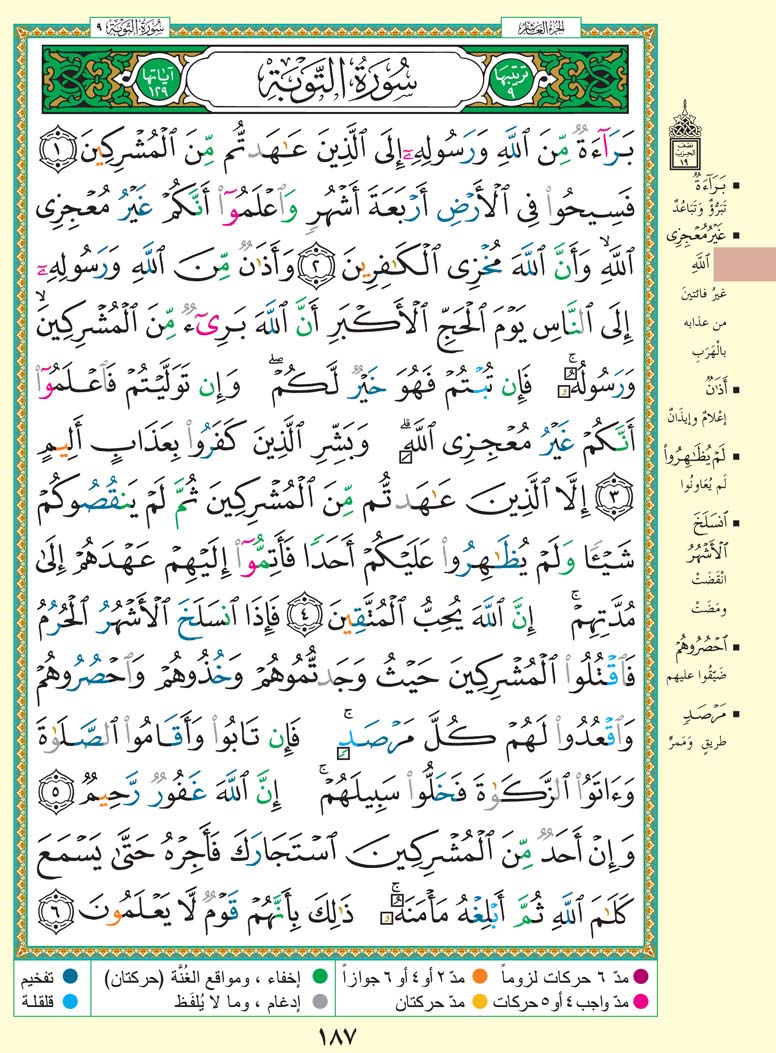 الجزء العاشر
سورة التوبة ٩
سُورَةُ التَّوْبَةِ
ترتيبها ٩
آياتها ١٢٩
بَرَآءَةٌ مِّنَ ٱللَّهِ وَرَسُولِهِۦٓ إِلَى ٱلَّذِينَ عَٰهَدتُّم مِّنَ ٱلْمُشْرِكِينَ ١
فَسِيحُوا۟ فِى ٱلْأَرْضِ أَرْبَعَةَ أَشْهُرٍ وَٱعْلَمُوٓا۟ أَنَّكُمْ غَيْرُ مُعْجِزِى
ٱللَّهِ ۙ وَأَنَّ ٱللَّهَ مُخْزِى ٱلْكَٰفِرِينَ ٢ وَأَذَٰنٌ مِّنَ ٱللَّهِ وَرَسُولِهِۦٓ
إِلَى ٱلنَّاسِ يَوْمَ ٱلْحَجِّ ٱلْأَكْبَرِ أَنَّ ٱللَّهَ بَرِىٓءٌ مِّنَ ٱلْمُشْرِكِينَ ۙ
وَرَسُولُهُۥ ۚ فَإِن تُبْتُمْ فَهُوَ خَيْرٌ لَّكُمْ ۖ وَإِن تَوَلَّيْتُمْ فَٱعْلَمُوٓا۟
أَنَّكُمْ غَيْرُ مُعْجِزِى ٱللَّهِ ۗ وَبَشِّرِ ٱلَّذِينَ كَفَرُوا۟ بِعَذَابٍ أَلِيمٍ
٣ إِلَّا ٱلَّذِينَ عَٰهَدتُّم مِّنَ ٱلْمُشْرِكِينَ ثُمَّ لَمْ يَنقُصُوكُمْ
شَيْـًٔا وَلَمْ يُظَٰهِرُوا۟ عَلَيْكُمْ أَحَدًا فَأَتِمُّوٓا۟ إِلَيْهِمْ عَهْدَهُمْ إِلَىٰ
مُدَّتِهِمْ ۚ إِنَّ ٱللَّهَ يُحِبُّ ٱلْمُتَّقِينَ ٤ فَإِذَا ٱنسَلَخَ ٱلْأَشْهُرُ ٱلْحُرُمُ
فَٱقْتُلُوا۟ ٱلْمُشْرِكِينَ حَيْثُ وَجَدتُّمُوهُمْ وَخُذُوهُمْ وَٱحْصُرُوهُمْ
وَٱقْعُدُوا۟ لَهُمْ كُلَّ مَرْصَدٍ ۚ فَإِن تَابُوا۟ وَأَقَامُوا۟ ٱلصَّلَوٰةَ
وَءَاتَوُا۟ ٱلزَّكَوٰةَ فَخَلُّوا۟ سَبِيلَهُمْ ۚ إِنَّ ٱللَّهَ غَفُورٌ رَّحِيمٌ ٥
وَإِنْ أَحَدٌ مِّنَ ٱلْمُشْرِكِينَ ٱسْتَجَارَكَ فَأَجِرْهُ حَتَّىٰ يَسْمَعَ
كَلَٰمَ ٱللَّهِ ثُمَّ أَبْلِغْهُ مَأْمَنَهُۥ ۚ ذَٰلِكَ بِأَنَّهُمْ قَوْمٌ لَّا يَعْلَمُونَ ٦
نصف الحزب ١٩
▪ بَرَآءَةٌ
تَبَرُّؤٌ وَتَبَاعُدٌ
▪ غَيْرُ مُعْجِزِى
ٱللَّهِ
غيرُ فائتينَ
من عذابه
بالْهَرَبِ
▪ أَذَٰنٌ
إعْلامٌ وإيذَانٌ
▪ لَمْ يُظَٰهِرُوا۟
لَم يُعَاونُوا
▪ ٱنسَلَخَ
ٱلْأَشْهُرُ
انْقَضَتْ
ومَضَتْ
▪ ٱحْصُرُوهُمْ
ضَيِّقُوا عليهم
▪ مَرْصَدٍ
طريقٍ وَمَمرٍّ
مدّ ٦ حركات لزوماً
مدّ ٢ أو ٤ أو ٦ جوازاً
إخفاء ، ومواقع الغُنَّة (حركتان)
تفخيم
مدّ واجب ٤ أو ٥ حركات
مدّ حركتان
إدغام ، وما لا يُلفَظ
قلقلة
١٨٧